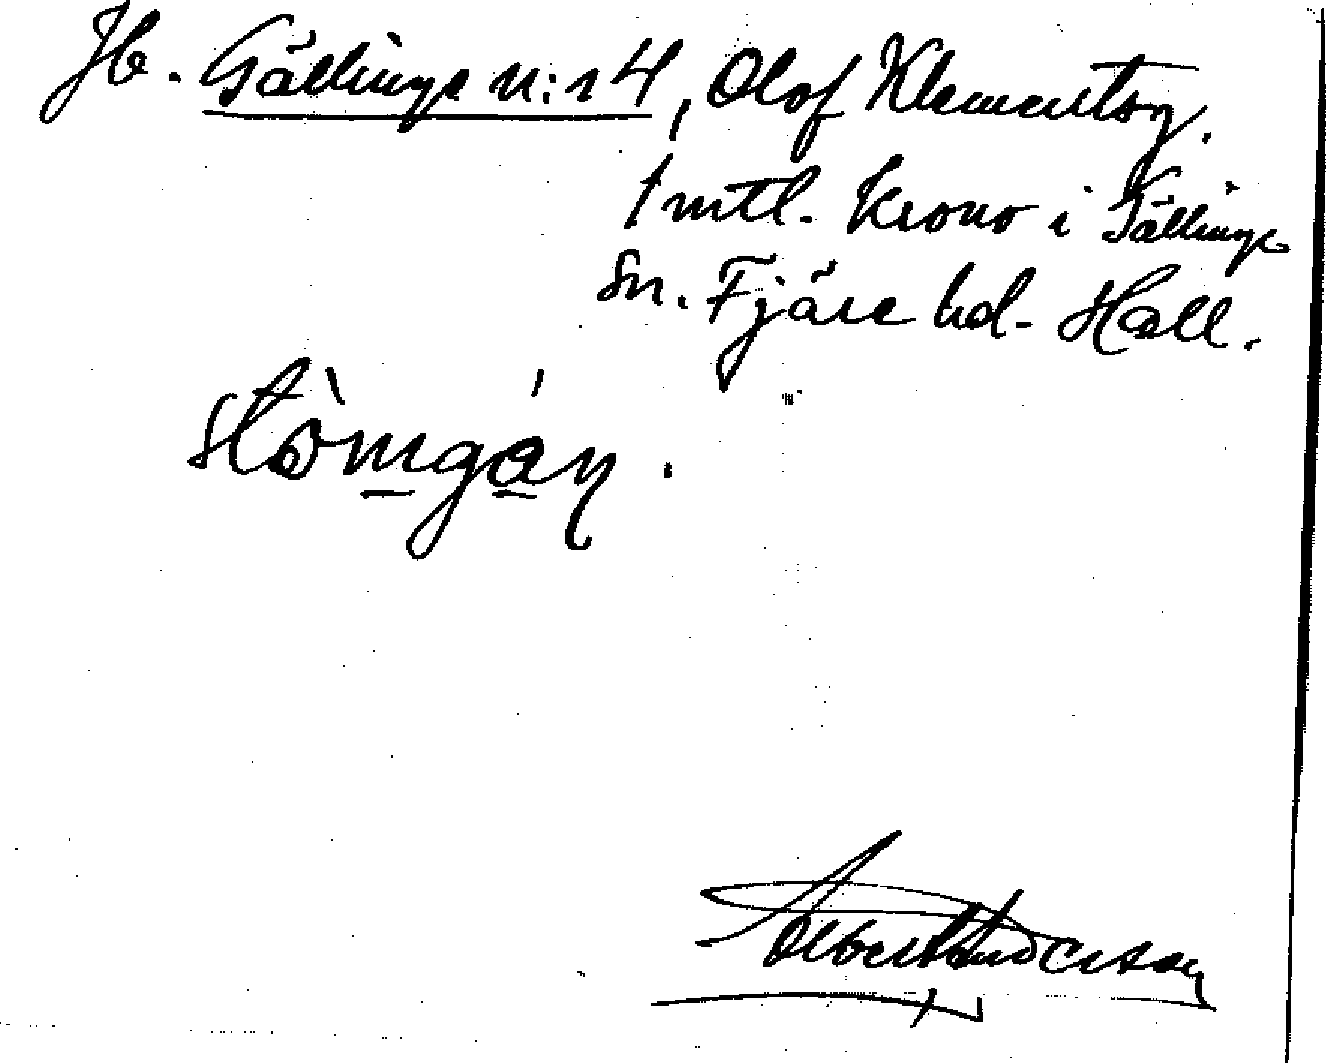 Jb. Gällinge n:r 4, Olof Klementsn.
1 mtl. Krono i Gällinge
sn. Fjäre hd. Hall.
stòmgán.
Albert Andersson